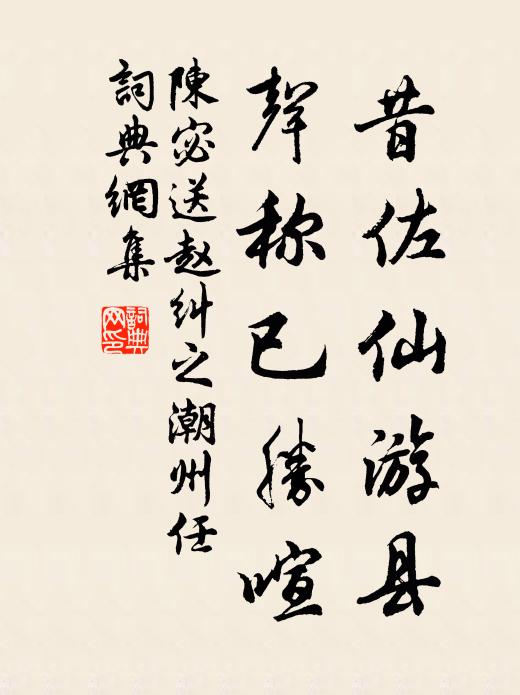 昔佐仙游县
聲称已勝喧
陳宓送赵糾之潮州任
詞典網集
詞典网印